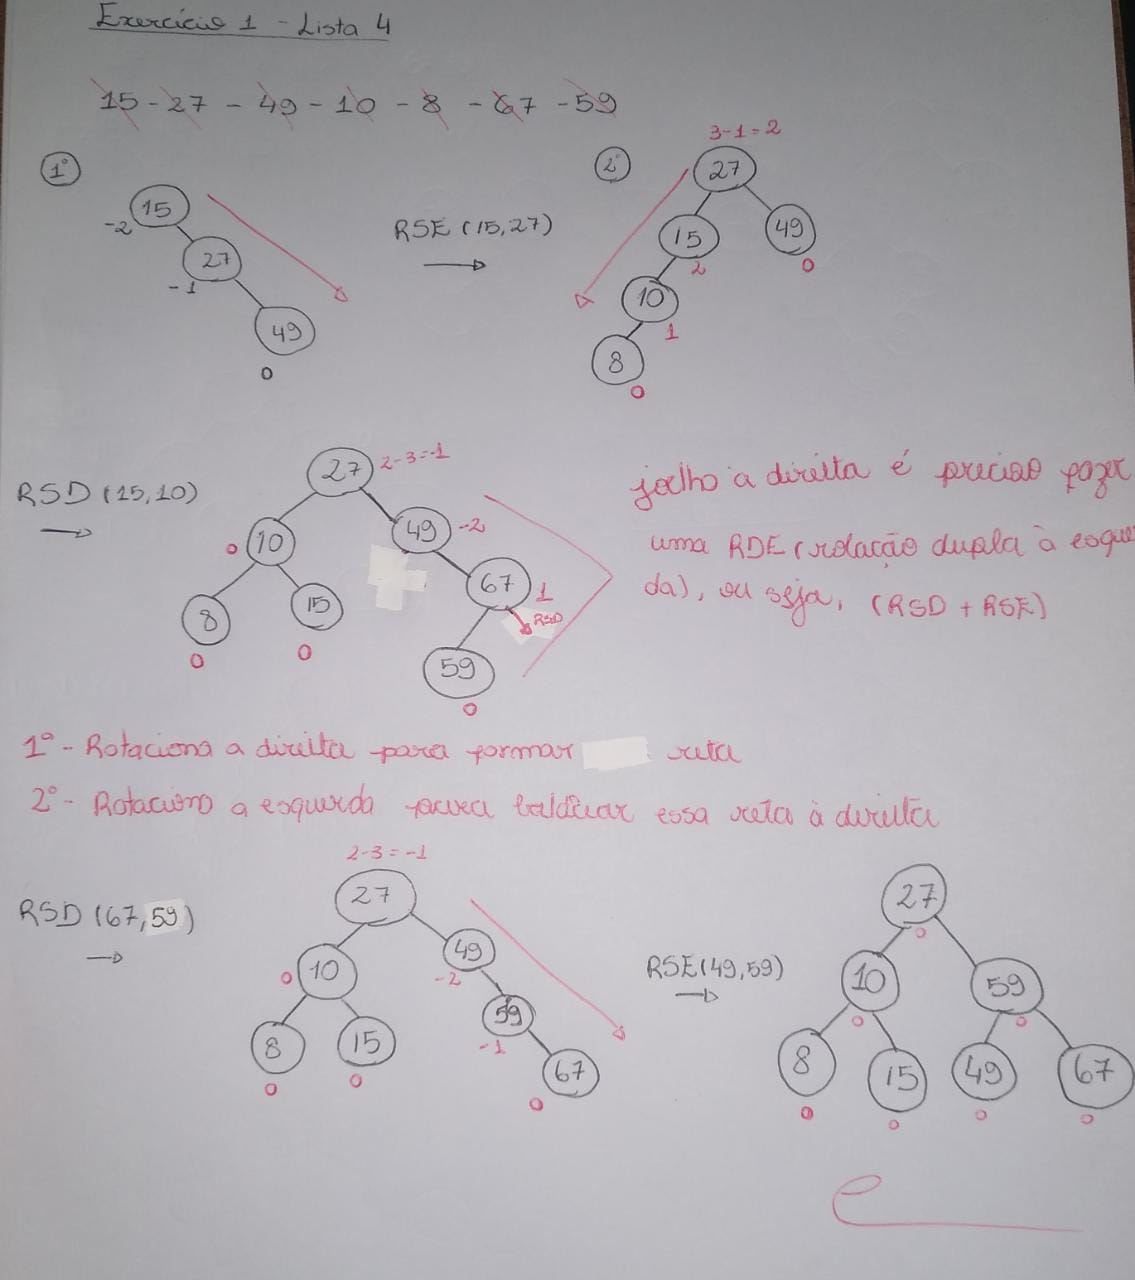 Exercício 1 - Lista 4
15 - 27 - 49 - 10 - 8 - 67 - 59
1º
15
-2
27
-1
49
0
RSE (15,27)
2º
3-1=2
27
15
2
49
0
10
1
8
0
RSD (15,10)
27
2-3=-1
0
10
49
-2
8
0
15
0
67
1
RSD
59
0
joelho a direita é preciso fazer
uma RDE (rotação dupla à esque
da), ou seja, (RSD + RSE)
1º - Rotaciona a direita para formar reta
2º - Rotaciono a esquerda para essa reta à direita
RSD (67,59)
2-3=-1
27
0
10
49
-2
8
0
15
0
59
-1
67
0
RSE(49,59)
27
0
10
0
59
0
8
0
15
0
49
0
67
0